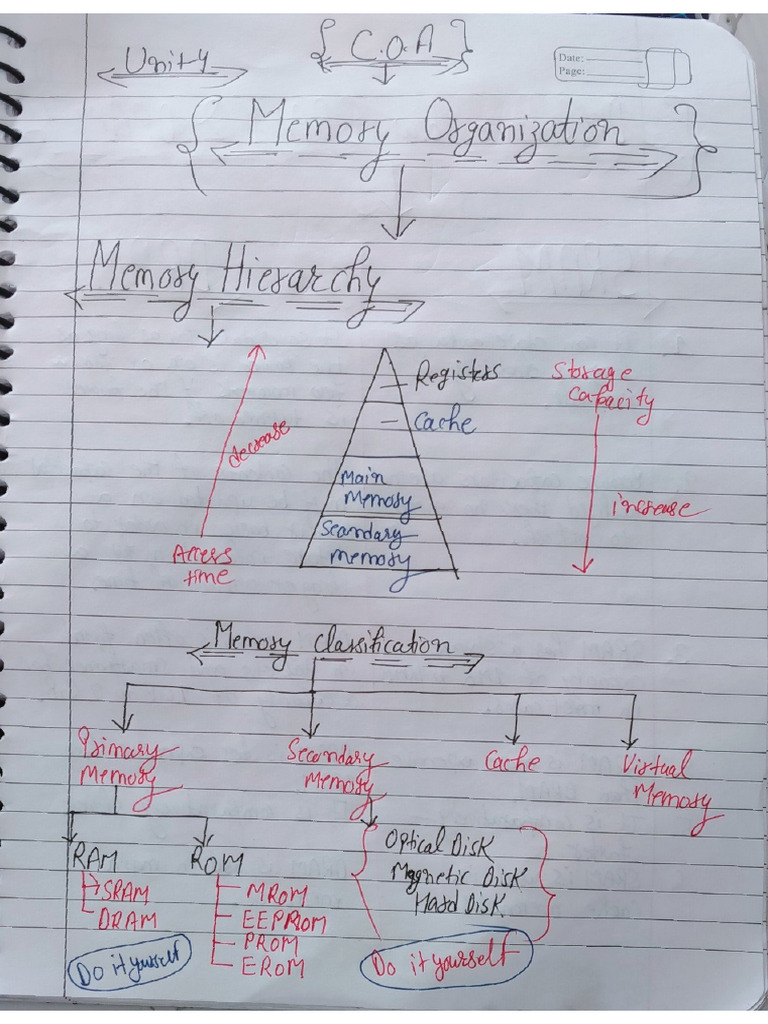 Unit-4
{ C.O.A }
Date:
Page:
{ Memory Organization }
Memory Hierarchy
Registers
Cache
Main
Memory
Secondary
memory
decrease
Access
time
Storage
Capacity
increase
Memory Classification
Primary
Memory
Secondary
Memory
Cache
Virtual
Memory
RAM
SRAM
DRAM
ROM
MROM
EEPROM
PROM
EROM
Optical Disk
Magnetic Disk
Hard Disk
Do it yourself
Do it yourself